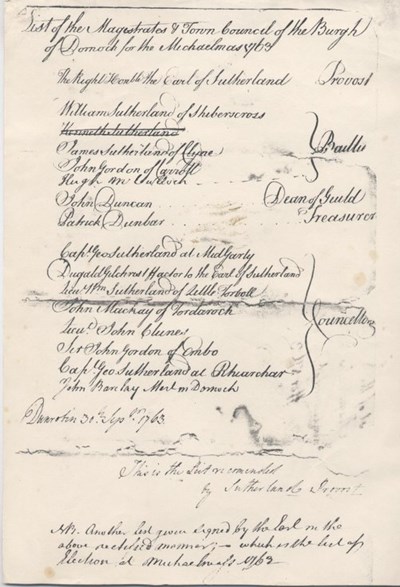 List of the Magistrates & Town Council of the Burgh
of Dornoch for the Michaelmas 1763
The Right Honble the Earl of Sutherland Provost
William Sutherland of Shiberscross
Kenneth Sutherland
James Sutherland of Clyne
Baillies
John Gordon of Carroll
Hugh McCulloch
John Duncan Dean of Guild
Patrick Dunbar Treasurer
Capt Geo Sutherland at Midgarty
Dugald Gilchrist Factor to the Earl of Sutherland
Lieut Wm Sutherland of Little Torboll
John Mackay of Tordaroch
Councellors
Lieut John Clunes
Sir John Gordon of Embo
Capt Geo Sutherland at Rhiarchar
John Barclay Mert in Dornoch
Dunrobin 30th Sepbr 1763
This is the List recomended
by Sutherland Provost
NB. Another list given signed by the Earl in the
above manner; which is the list of
Election at Michaelmass 1763